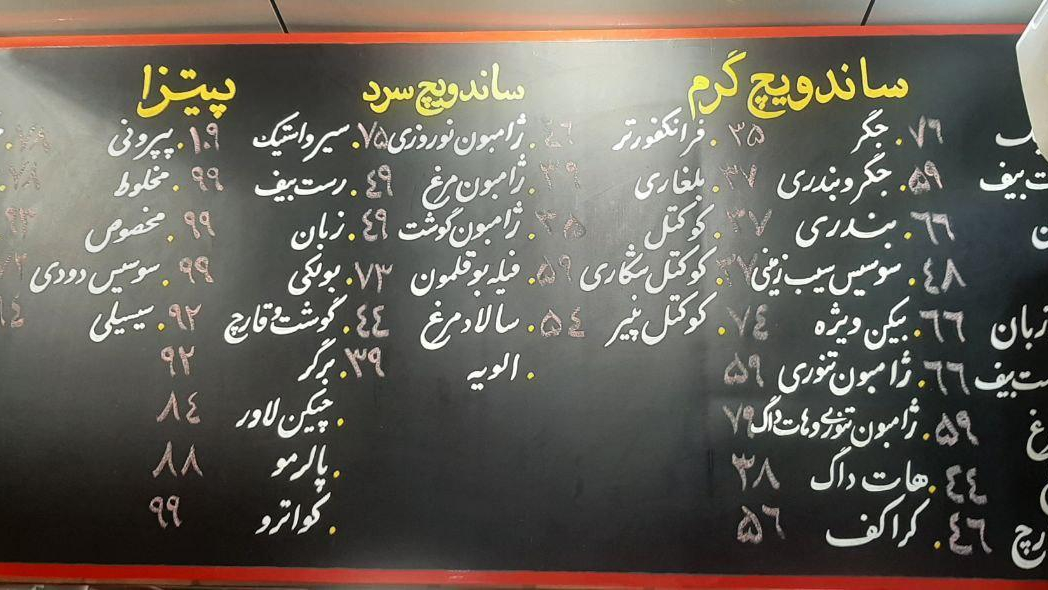 ساندویچ گرم
۷۹
بیف ۵۹
۶۶
۴۸
زبان ۶۶
بیف ۶۶
۵۹
۴۴
۴۶
جگر ۳۵
جگر و بندری ۳۷
بندری ۳۷
سوسیس سیب زمینی
بیکن ویژه ۷۴
ژامبون تنوری ۵۹
ژامبون تنوری و هات داگ ۷۹
هات داگ ۳۸
کراکف ۵۶
فرانکفورتر ۴۶
بلغاری ۳۹
کوکتل ۳۸
کوکتل ۵۹
کوکتل پنیر ۵۴
ساندویچ سرد
ژامبون نوروزی ۷۵
ژامبون مرغ ۴۹
ژامبون گوشت ۴۹
فیله بوقلمون ۷۳
سالاد مرغ ۴۴
الویه ۳۹
پیتزا
سیر و استیک ۱۰۹
رست بیف ۹۹
زبان ۹۹
۹۹
گوشت و قارچ ۹۲
برگر ۹۲
چیکن لاور ۸۴
پالرمو ۸۸
کواترو ۹۹
پپرونی
مخلوط ۷۸
مخصوص ۹۳
سوسیس دودی
سیسیلی